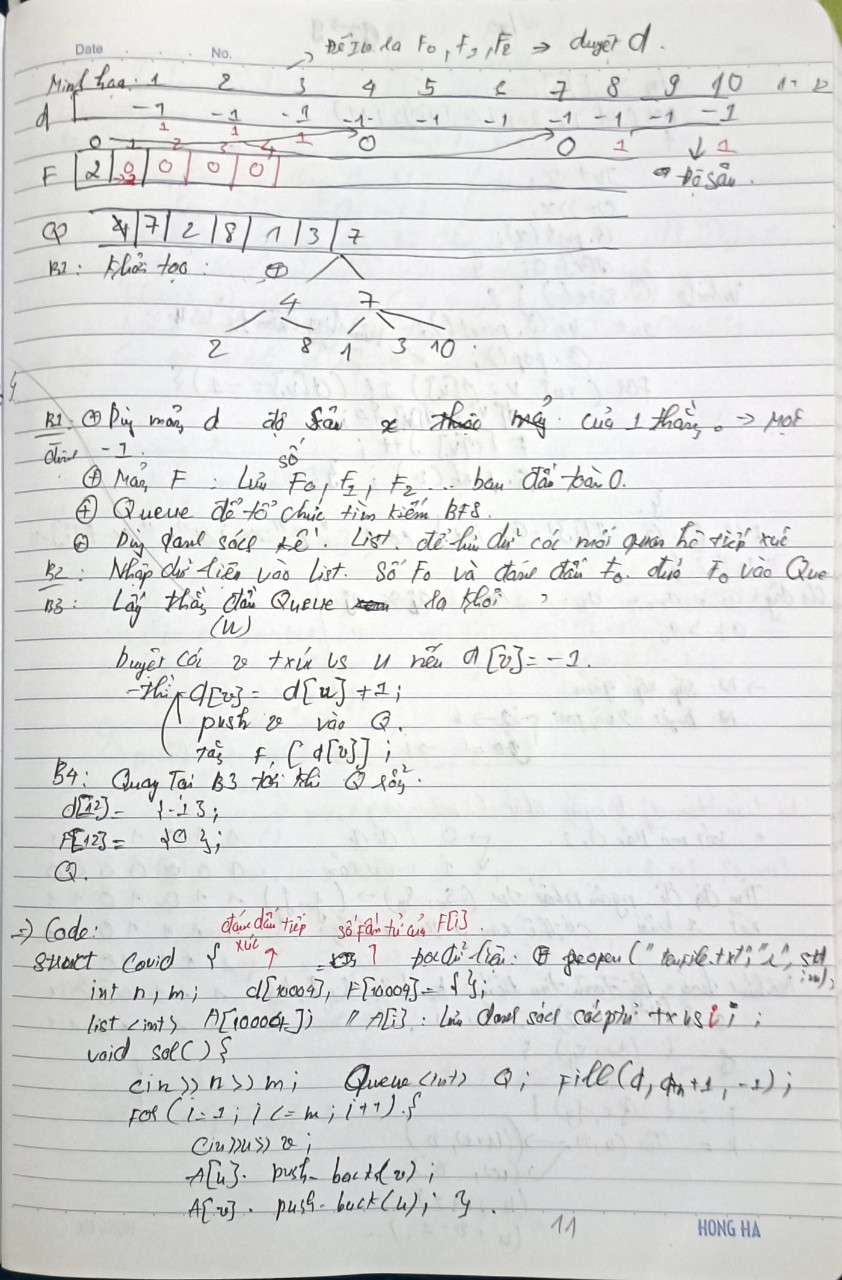 Date . . . No.
→ Để In ra F0, F1, F2 ⇒ duyệt d.
Minh họa: 1 2 3 4 5 6 7 8 9 10
d -1 -1 -1 -1 -1 -1 -1 -1 -1 -1
1 1 1 0 0 1 ↓ 1
0 1 2 3 4
F 2 0 0 0 0 Độ sâu.
Q 4 7 2 8 1 3 7
B2: Khởi tạo:
4 7
2 8 1 3 10
B1: ⊕ Dùng mảng d độ sâu của 1 thằng. → Mọi
đỉnh -1.
⊕ Mảng F: Lưu số F0, F1, F2 ... ban đầu toàn 0.
⊕ Queue để tổ chức tìm kiếm BFS.
⊕ Dùng danh sách kề. List. để lưu dữ các mối quan hệ tiếp xúc
B2: Nhập dữ liệu vào List. Số F0 và đánh dấu F0. đưa F0 vào Que
B3: Lấy thằng đầu Queue ra khỏi
(u)
Duyệt các v txúc vs u nếu d[v] = -1.
- thì d[v] = d[u] + 1;
push v vào Q.
tăng F[d[v]];
B4: Quay lại B3 tới khi Q rỗng.
d[12] = {-1};
F[12] = {0};
Q.
⇒ Code: đánh dấu tiếp xúc ↑ số phần tử của F[i] ↑
struct Covid { đọc dữ liệu: ⊕ freopen("
int n, m; d[10004], F[10004] = {};
list <int> A[10004]; // A[i]: Lưu danh sách các txvs i;
void sol() {
cin >> n >> m; Queue <int> Q; Fill(d, d+n+1, -1);
For (i=1; i<=m; i++) {
cin >> u >> v;
A[u]. push-back(v);
A[v]. push-back(u); }.
11 HONG HA